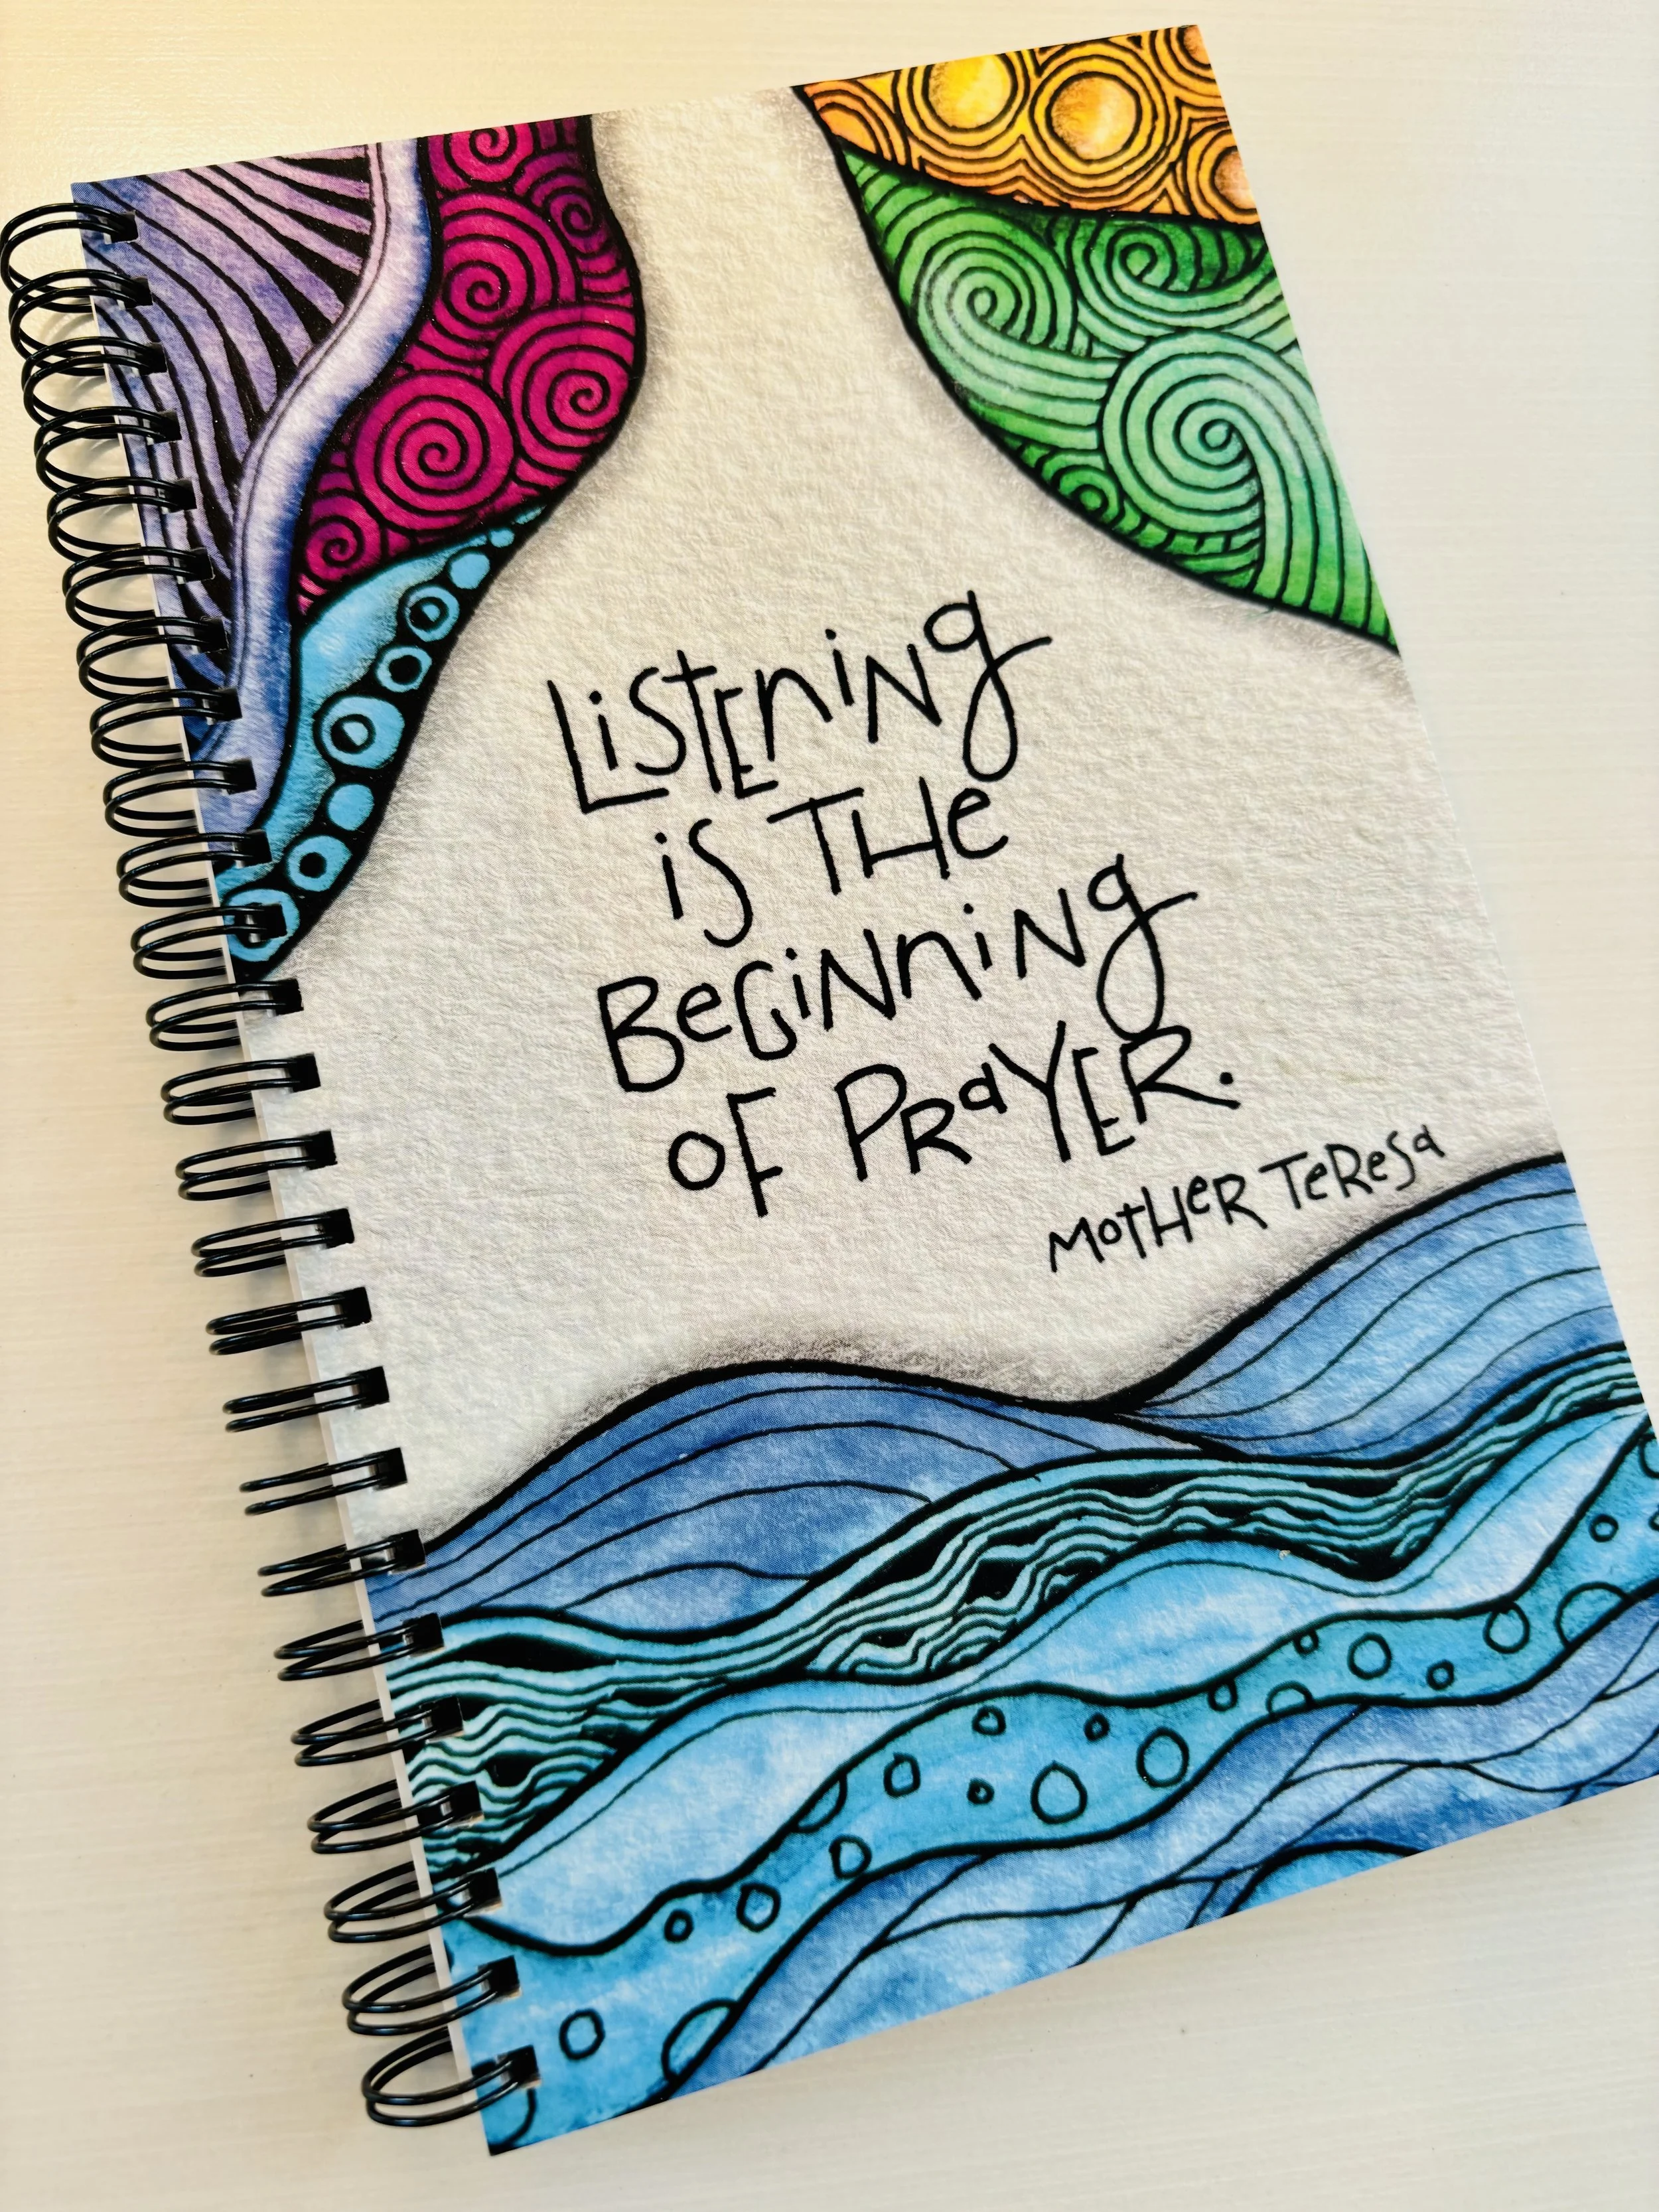 Listening
is the
Beginning
of Prayer.
Mother Teresa